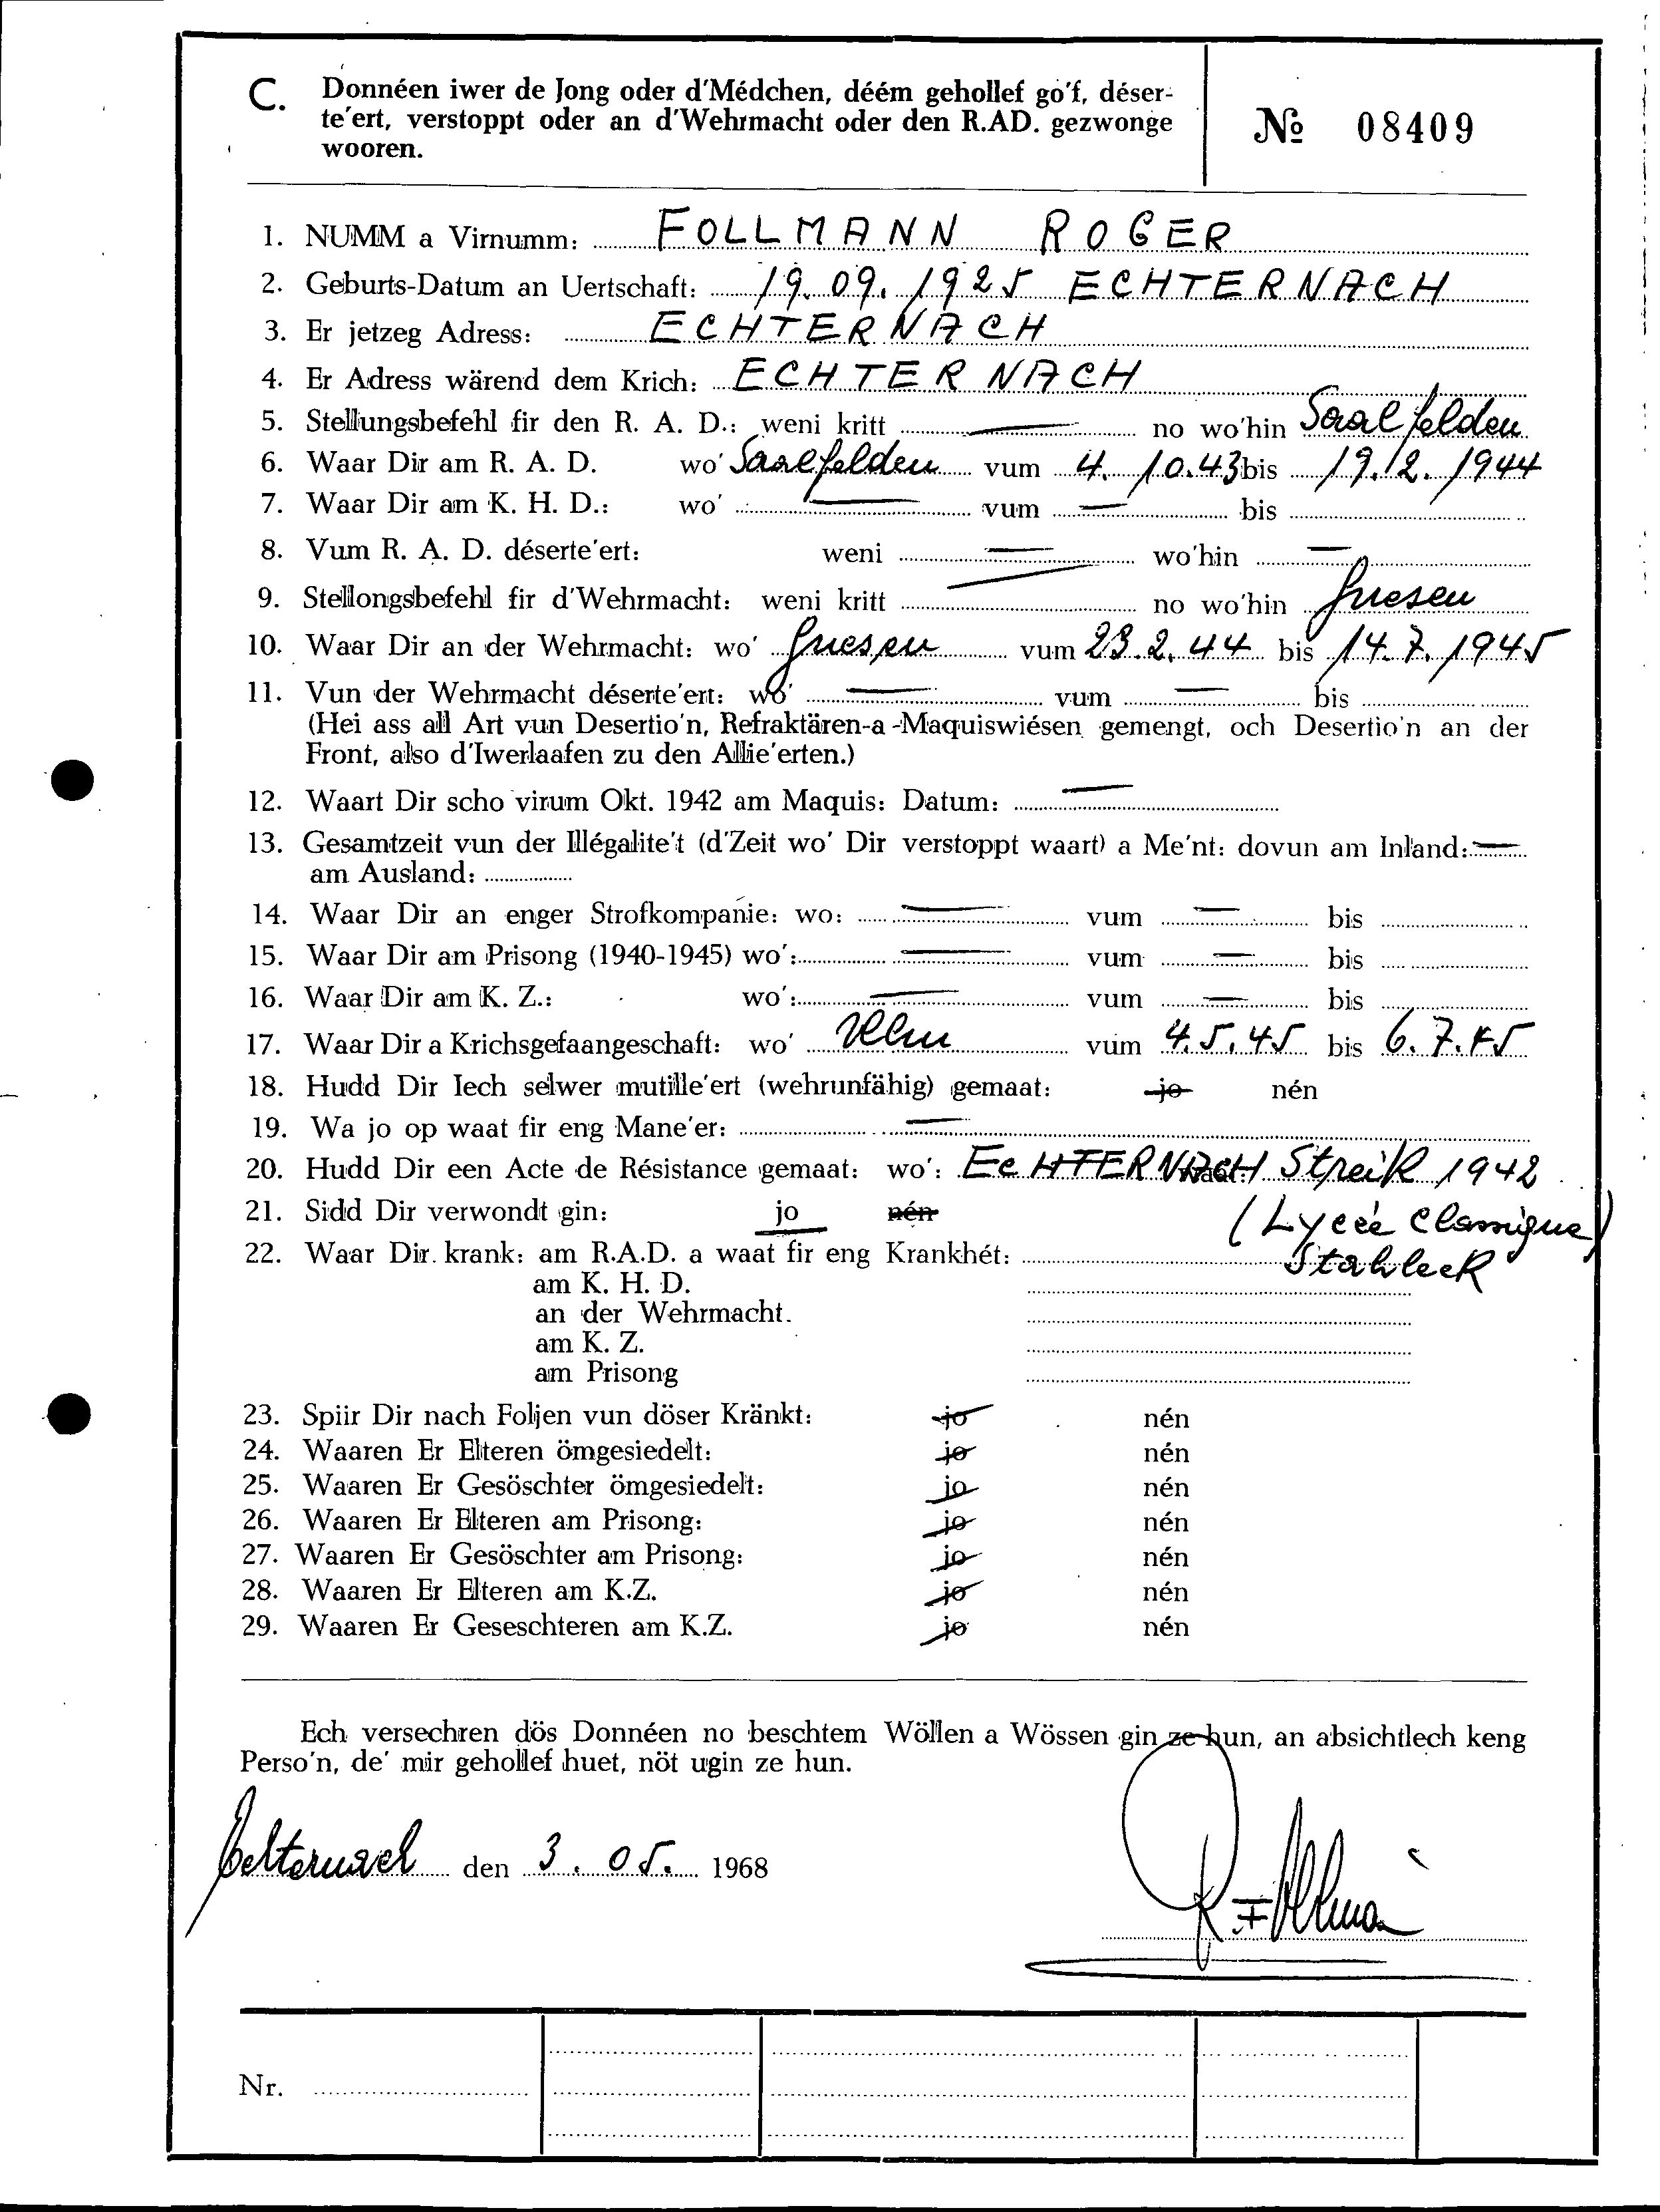 C. Donnéen iwer de Jong oder d'Médchen, déém gehollef go'f, déser-
te'ert, verstoppt oder an d'Wehrmacht oder den R.AD. gezwonge
wooren.
№ 08409
1. NUMM a Virnumm: FOLLMANN ROGER
2. Geburts-Datum an Uertschaft: 19.09.1925 ECHTERNACH
3. Er jetzeg Adress: ECHTERNACH
4. Er Adress wärend dem Krich: ECHTERNACH
5. Stellungsbefehl fir den R. A. D.: weni kritt — no wo'hin Saalfelden
6. Waar Dir am R. A. D. wo' Saalfelden vum 4.10.43 bis 19.12.1944
7. Waar Dir am K. H. D.: wo' — vum — bis
8. Vum R. A. D. déserte'ert: weni — wo'hin —
9. Stellongsbefehl fir d'Wehrmacht: weni kritt — no wo'hin
10. Waar Dir an der Wehrmacht: wo' vum 23.2.44 bis 14.7.1945
11. Vun der Wehrmacht déserte'ert: wo' — vum — bis
(Hei ass all Art vun Desertio'n, Refraktären-a-Maquiswiésen gemengt, och Desertio'n an der
Front, also d'Iwerlaafen zu den Allie'erten.)
12. Waart Dir scho virum Okt. 1942 am Maquis: Datum: —
13. Gesamtzeit vun der Illégalite't (d'Zeit wo' Dir verstoppt waart) a Me'nt: dovun am Inland: —
am Ausland:
14. Waar Dir an enger Strofkompanie: wo: — vum — bis
15. Waar Dir am Prisong (1940-1945) wo': — vum — bis
16. Waar Dir am K. Z.: wo': — vum — bis
17. Waar Dir a Krichsgefaangeschaft: wo' Ulm vum 4.5.45 bis 6.7.45
18. Hudd Dir Iech selwer mutille'ert (wehrunfähig) gemaat: jo nén
19. Wa jo op waat fir eng Mane'er: —
20. Hudd Dir een Acte de Résistance gemaat: wo': ECHTERNACH waat: Streik 1942
21. Sidd Dir verwondt gin: jo nén (Lycée Classique)
22. Waar Dir krank: am R.A.D. a waat fir eng Krankhét: Stahleck
am K. H. D.
an der Wehrmacht.
am K. Z.
am Prisong
23. Spiir Dir nach Foljen vun döser Kränkt: jo nén
24. Waaren Er Elteren ömgesiedelt: jo nén
25. Waaren Er Gesöschter ömgesiedelt: jo nén
26. Waaren Er Elteren am Prisong: jo nén
27. Waaren Er Gesöschter am Prisong: jo nén
28. Waaren Er Elteren am K.Z. jo nén
29. Waaren Er Geseschteren am K.Z. jo nén
Ech versechren dös Donnéen no beschtem Wöllen a Wössen gin ze hun, an absichtlech keng
Perso'n, de' mir gehollef huet, nöt ugin ze hun.
Echternach den 3.05. 1968
R Follman
Nr.